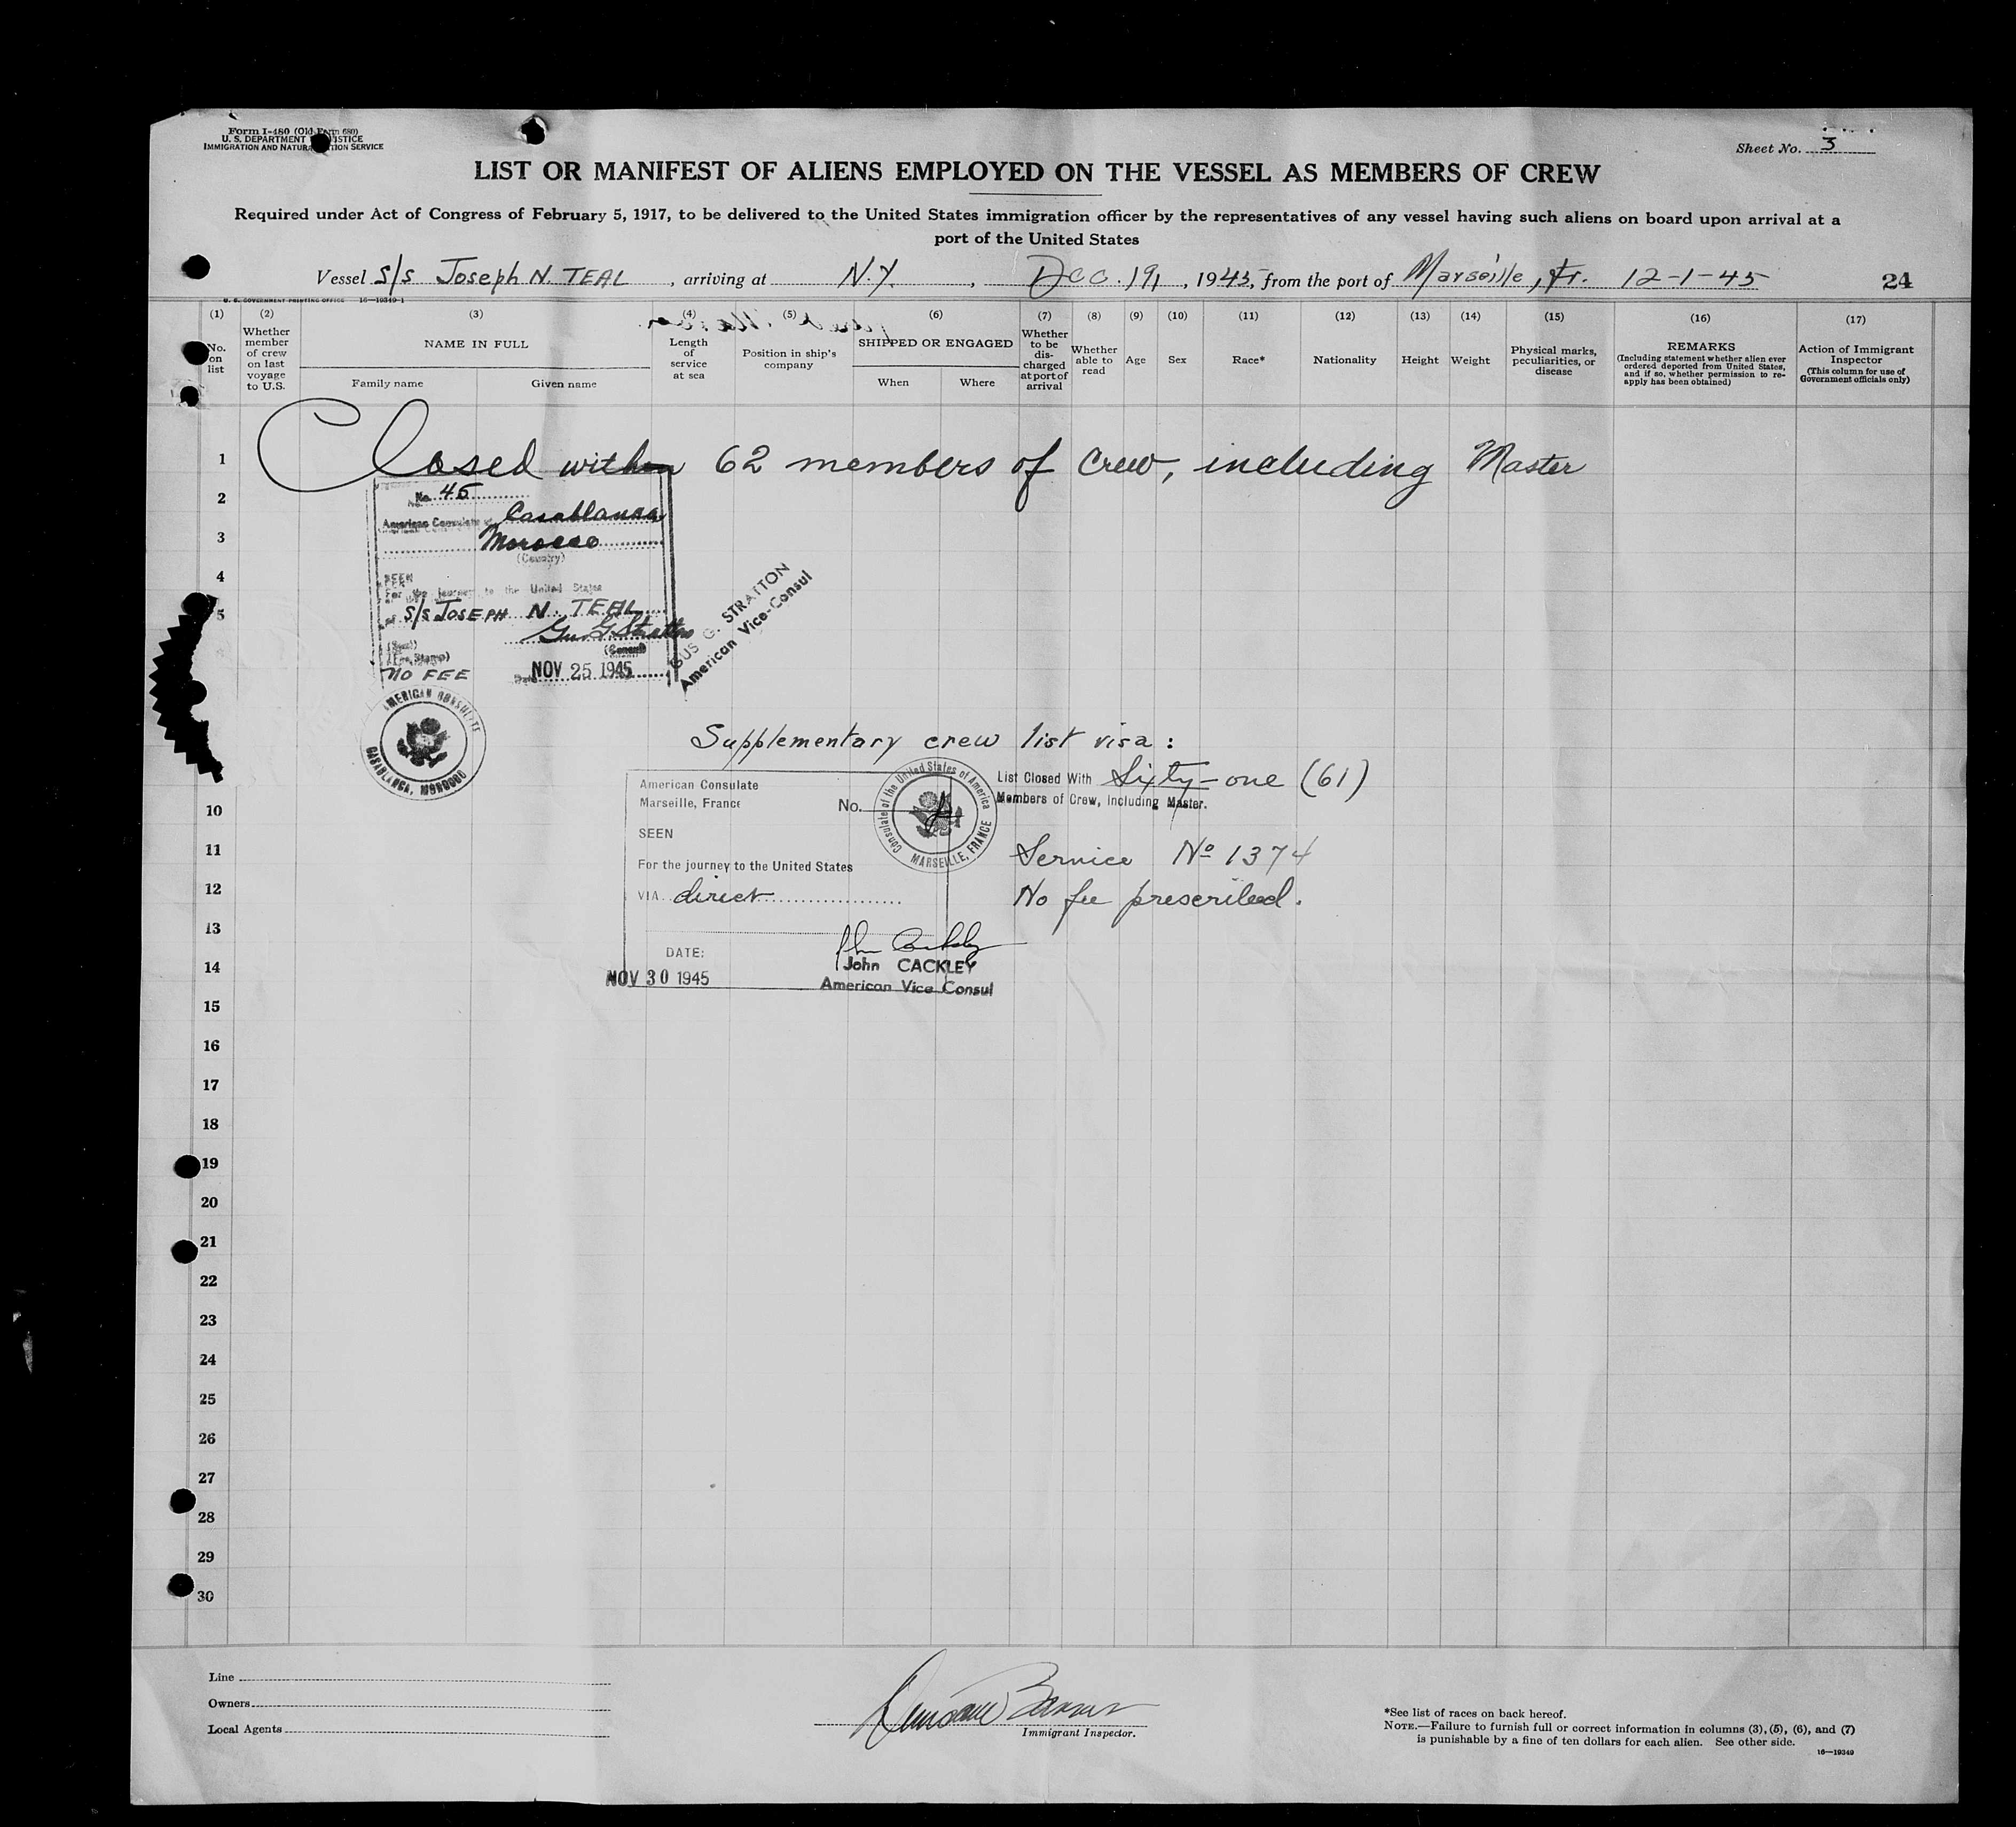 Form I-480 (Old Form 680)
U. S. DEPARTMENT JUSTICE
IMMIGRATION AND NATURALIZATION SERVICE
Sheet No. 3
LIST OR MANIFEST OF ALIENS EMPLOYED ON THE VESSEL AS MEMBERS OF CREW
Required under Act of Congress of February 5, 1917, to be delivered to the United States immigration officer by the representatives of any vessel having such aliens on board upon arrival at a
port of the United States
Vessel S/S Joseph N. TEAL, arriving at N.Y., Dec. 19, 1945, from the port of Marseille, Fr. 12-1-45
24
U. S. GOVERNMENT PRINTING OFFICE 16—19349-1
(1) No. on list
(2) Whether member of crew on last voyage to U.S.
(3) NAME IN FULL
Family name Given name
(4) Length of service at sea
(5) Position in ship's company
(6) SHIPPED OR ENGAGED
When Where
(7) Whether to be discharged at port of arrival
(8) Whether able to read
(9) Age
(10) Sex
(11) Race*
(12) Nationality
(13) Height
(14) Weight
(15) Physical marks, peculiarities, or disease
(16) REMARKS
(Including statement whether alien ever ordered deported from United States, and if so, whether permission to reapply has been obtained)
(17) Action of Immigrant Inspector
(This column for use of Government officials only)
1 Closed with 62 members of crew, including Master
2
3
4
5
No. 45
American Consulate Casablanca
Morocco
(Country)
SEEN
For the journey to the United States
S/S JOSEPH N. TEAL
Gus G. Stratton
(Seal) (Consul)
(Fee Stamp)
NO FEE
Date NOV 25 1945
GUS G. STRATTON
American Vice-Consul
AMERICAN CONSULATE
CASABLANCA, MOROCCO
Supplementary crew list visa:
American Consulate
Marseille, France No. 4
Consulate of the United States of America
MARSEILLE, FRANCE
List Closed With Sixty-one (61)
Members of Crew, Including Master.
SEEN
For the journey to the United States
VIA direct
Service No 1374
No fee prescribed.
DATE:
NOV 30 1945
John Cackley
John CACKLEY
American Vice Consul
10
11
12
13
14
15
16
17
18
19
20
21
22
23
24
25
26
27
28
29
30
Line
Owners
Local Agents
Immigrant Inspector.
*See list of races on back hereof.
NOTE.—Failure to furnish full or correct information in columns (3), (5), (6), and (7)
is punishable by a fine of ten dollars for each alien. See other side.
16—19349